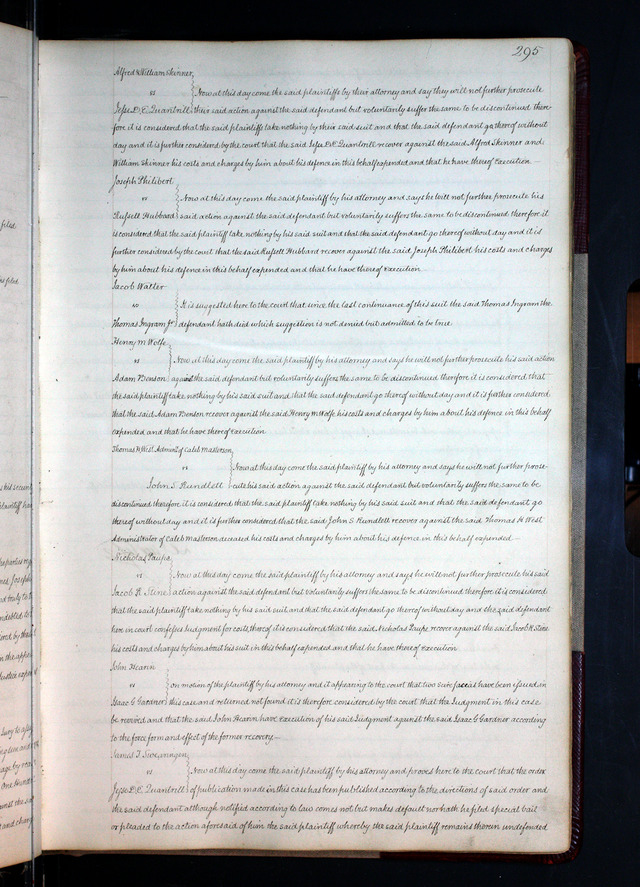 295
Alfred & William Skinner
vs Now at this day come the said plaintiffs by their attorney and say they will not further prosecute
Jesse D. E. Quantrill their said action against the said defendant but voluntarily suffer the same to be discontinued there-
fore it is considered that the said plaintiffs take nothing by their said suit and that the said defendant go thereof without
day and it is further considered by the court that the said Jesse D E Quantrill recover against the said Alfred Skinner and
William Skinner his costs and charges by him about his defence in this behalf expended and that he have thereof execution.—
Joseph Philibert
vs Now at this day come the said plaintiff by his attorney and says he will not further prosecute his
Russell Hubbard said action against the said defendant but voluntarily suffers the same to be discontinued therefore it
is considered that the said plaintiff take nothing by his said suit and that the said defendant go thereof without day and it is
further considered by the court that the said Russell Hubbard recover against the said Joseph Philibert his costs and charges
by him about his defence in this behalf expended and that he have thereof execution.
Jacob Walter
vs It is suggested here to the court that since the last continuance of this suit the said Thomas Ingram the
Thomas Ingram Jr defendant hath died which suggestion is not denied but admitted to be true
Henry M Wolfe
vs Now at this day come the said plaintiff by his attorney and says he will not further prosecute his said action
Adam Benson against the said defendant but voluntarily suffers the same to be discontinued therefore it is considered that
the said plaintiff take nothing by his said suit and that the said defendant go thereof without day and it is further considered
that the said Adam Benson recover against the said Henry M Wolfe his costs and charges by him about his defence in this behalf
expended and that he have thereof execution
Thomas H West Adminr of Caleb Masterson
vs Now at this day come the said plaintiff by his attorney and says he will not further prose-
John S. Rundlett cute his said action against the said defendant but voluntarily suffers the same to be
discontinued therefore it is considered that the said plaintiff take nothing by his said suit and that the said defendant go
thereof without day and it is further considered that the said John S Rundlett recover against the said Thomas H West
Administrator of Caleb Masterson deceased his costs and charges by him about his defence in this behalf expended—
Nicholas Paups
vs Now at this day come the said plaintiff by his attorney and says he will not further prosecute his said
Jacob R Stine action against the said defendant but voluntarily suffers the same to be discontinued therefore it is considered
that the said plaintiff take nothing by his said suit and that the said defendant go thereof without day and the said defendant
here in court confesses Judgment for costs thereof it is considered that the said Nicholas Paups recover against the said Jacob R Stine
his costs and charges by him about his suit in this behalf expended and that he have thereof execution
John Hearn
vs on motion of the plaintiff by his attorney and it appearing to the court that two scire facias have been issued in
Isaac G Gardner this case and returned not found it is therefore considered by the court that the Judgment in this case
be revived and that the said John Hearn have execution of his said Judgment against the said Isaac G Gardner according
to the force form and effect of the former recovery.—
James T Swearingen
vs Now at this day come the said plaintiff by his attorney and proves here to the court that the order
Jesse D. E. Quantrill of publication made in this case has been published according to the directions of said order and
the said defendant although notified according to law comes not but makes default nor hath he filed special bail
or pleaded to the action aforesaid of him the said plaintiff whereby the said plaintiff remains therein undefended